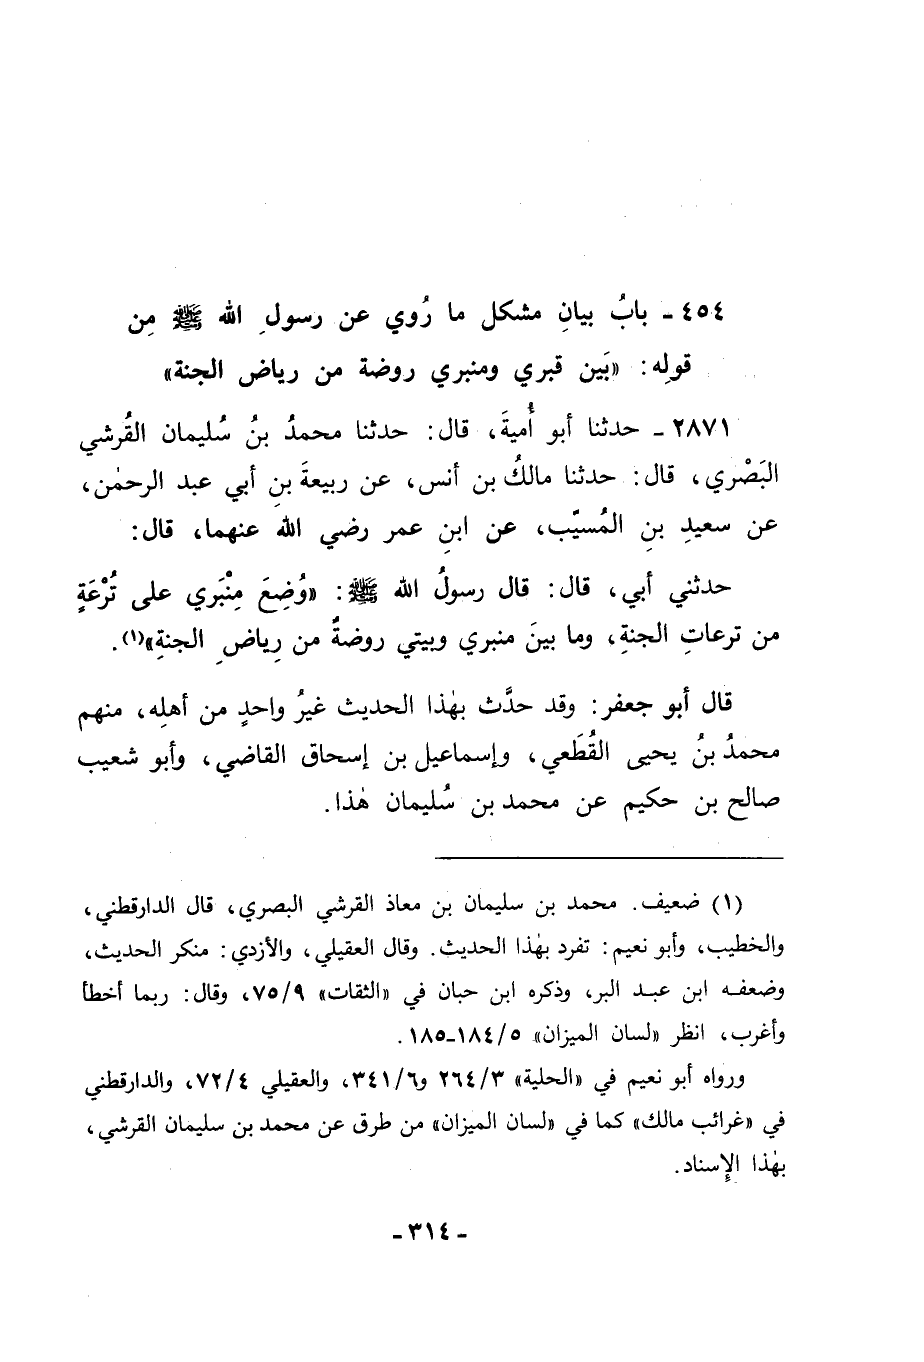 ٤٥٤ - بابُ بيانِ مشكل ما رُوي عن رسولِ الله ﷺ مِن
قولِه: «بَين قبري ومنبري روضة من رياض الجنة»
٢٨٧١ - حدثنا أبو أُميةَ، قال: حدثنا محمدُ بنُ سُليمان القُرشي
البَصْري، قال: حدثنا مالكُ بن أنس، عن ربيعةَ بنِ أبي عبد الرحمٰن،
عن سعيدِ بنِ المُسيّب، عن ابنِ عمر رضي الله عنهما، قال:
حدثني أبي، قال: قال رسولُ الله ﷺ: «وُضِعَ مِنْبَري على تُرْعَةٍ
من ترعاتِ الجنةِ، وما بينَ منبري وبيتي روضةٌ من رِياضِ الجنةِ»(١).
قال أبو جعفر: وقد حدَّث بهٰذا الحديث غيرُ واحدٍ من أهلِه، منهم
محمدُ بنُ يحيى القُطَعي، وإسماعيل بن إسحاق القاضي، وأبو شعيب
صالح بن حكيم عن محمد بن سُليمان هٰذا.
(١) ضعيف. محمد بن سليمان بن معاذ القرشي البصري، قال الدارقطني،
والخطيب، وأبو نعيم: تفرد بهٰذا الحديث. وقال العقيلي، والأزدي: منكر الحديث،
وضعفه ابن عبد البر، وذكره ابن حبان في «الثقات» ٧٥/٩، وقال: ربما أخطأ
وأغرب، انظر «لسان الميزان» ١٨٤/٥-١٨٥.
ورواه أبو نعيم في «الحلية» ٢٦٤/٣ و٣٤١/٦، والعقيلي ٧٢/٤، والدارقطني
في «غرائب مالك» كما في «لسان الميزان» من طرق عن محمد بن سليمان القرشي،
بهٰذا الإِسناد.
- ٣١٤ -